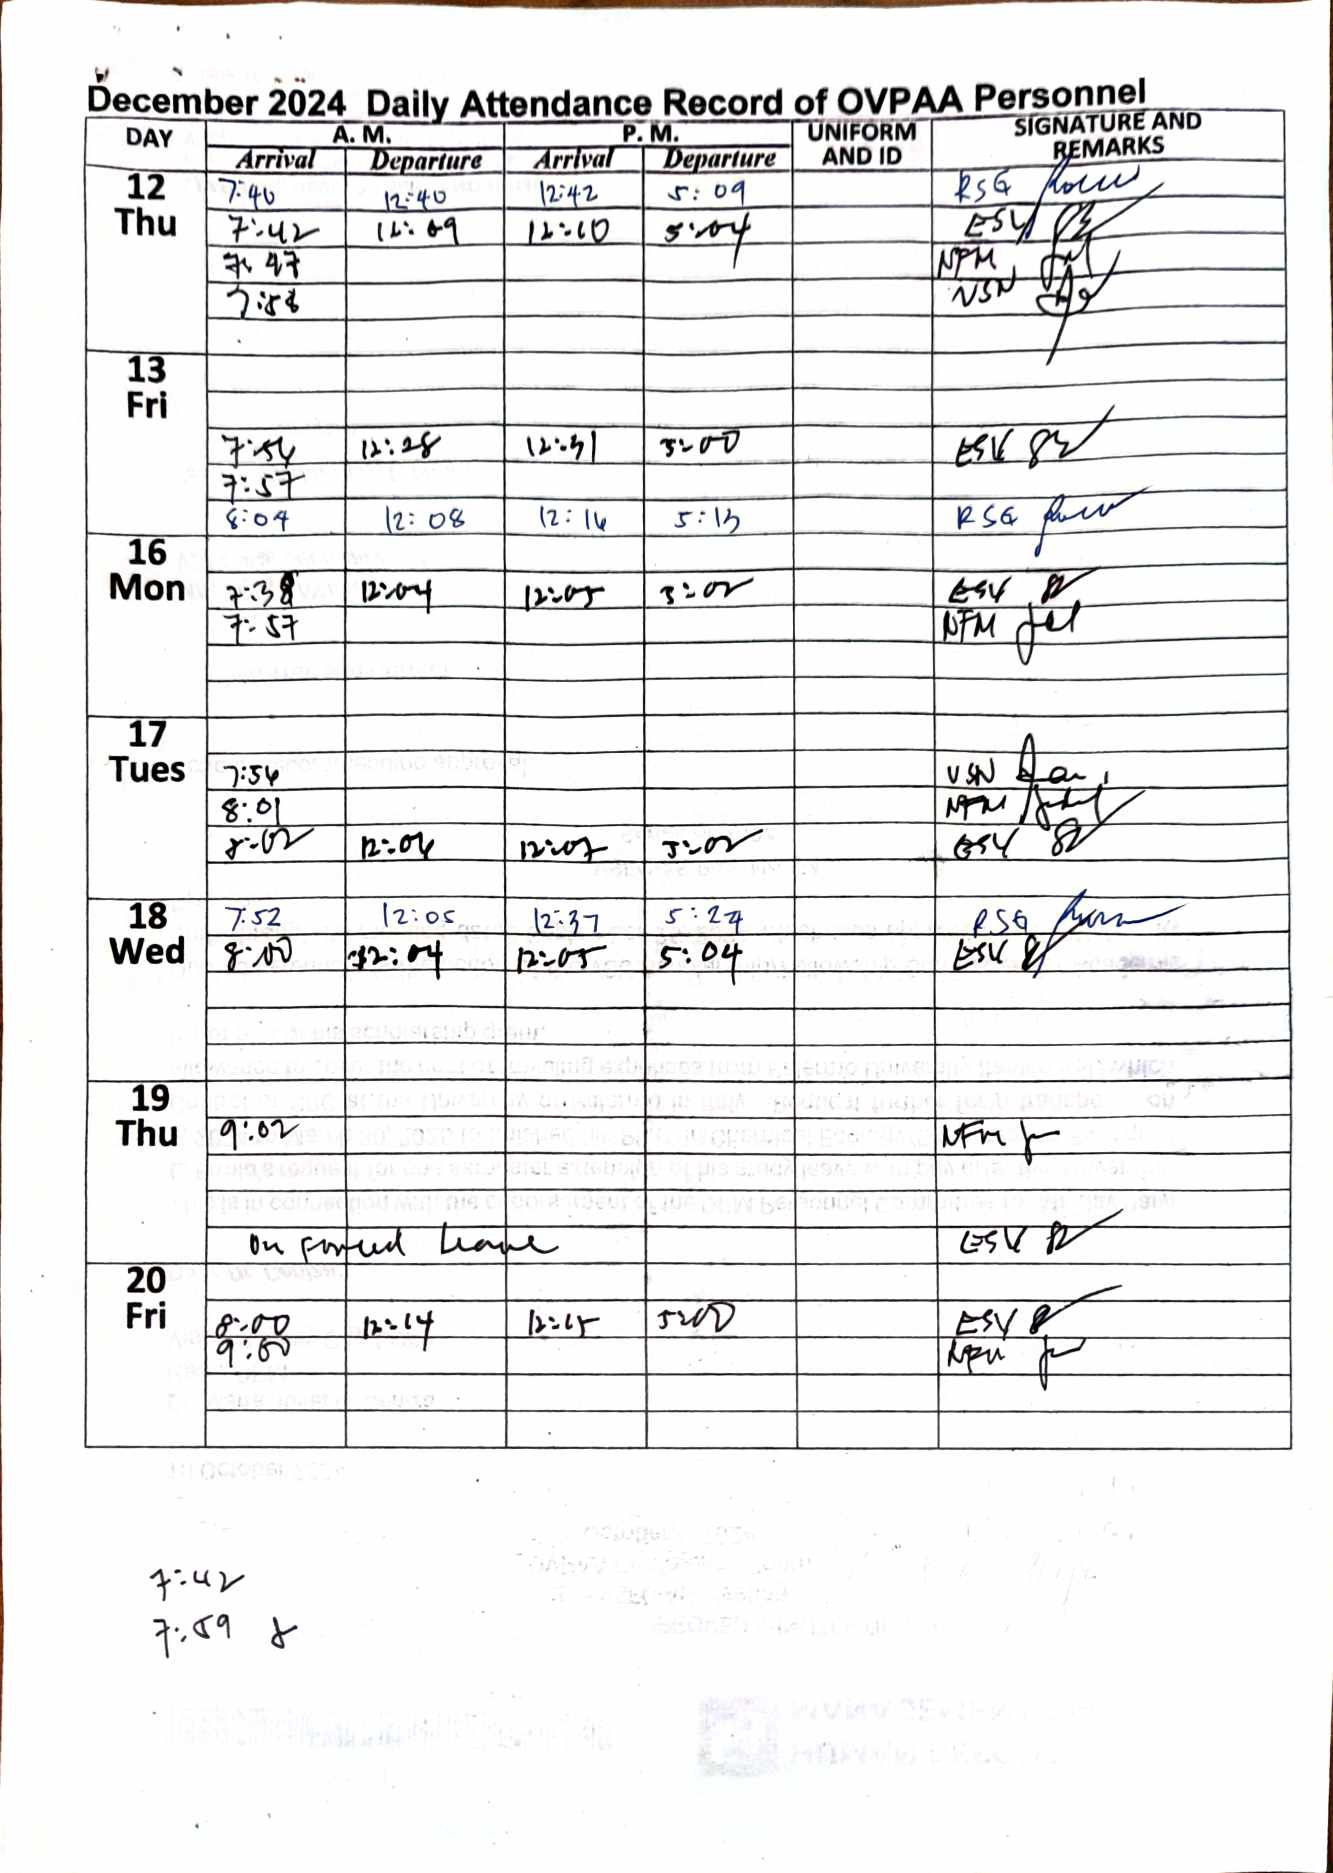 December 2024 Daily Attendance Record of OVPAA Personnel
DAY A. M. P. M. UNIFORM AND ID SIGNATURE AND REMARKS
Arrival Departure Arrival Departure
12 Thu
7:40 12:40 12:42 5:09 RSG
7:42 12:09 12:10 5:04 ESV
7:47 NFM
7:58 VSN
13 Fri
7:54 12:28 12:31 5:00 ESV
7:57
8:04 12:08 12:16 5:13 RSG
16 Mon
7:38 12:04 12:05 5:02 ESV
7:57 NFM
17 Tues
7:54 VSN
8:01 NFM
8:02 12:06 12:07 5:02 ESV
18 Wed
7:52 12:05 12:37 5:24 RSG
8:00 12:04 12:05 5:04 ESV
19 Thu
9:02 NFM
On forced leave ESV
20 Fri
8:00 12:14 12:15 5:00 ESV
9:00 NFM
7:42
7:59